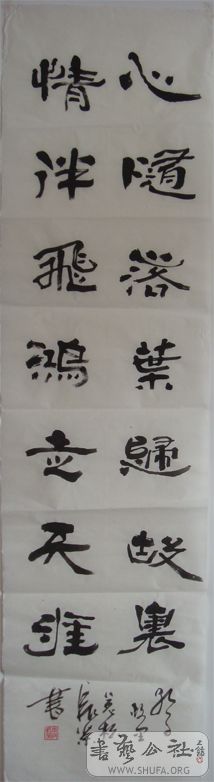 心隨落葉歸故裏
情伴飛鴻走天涯
書
書藝公社
WWW.SHUFA.ORG